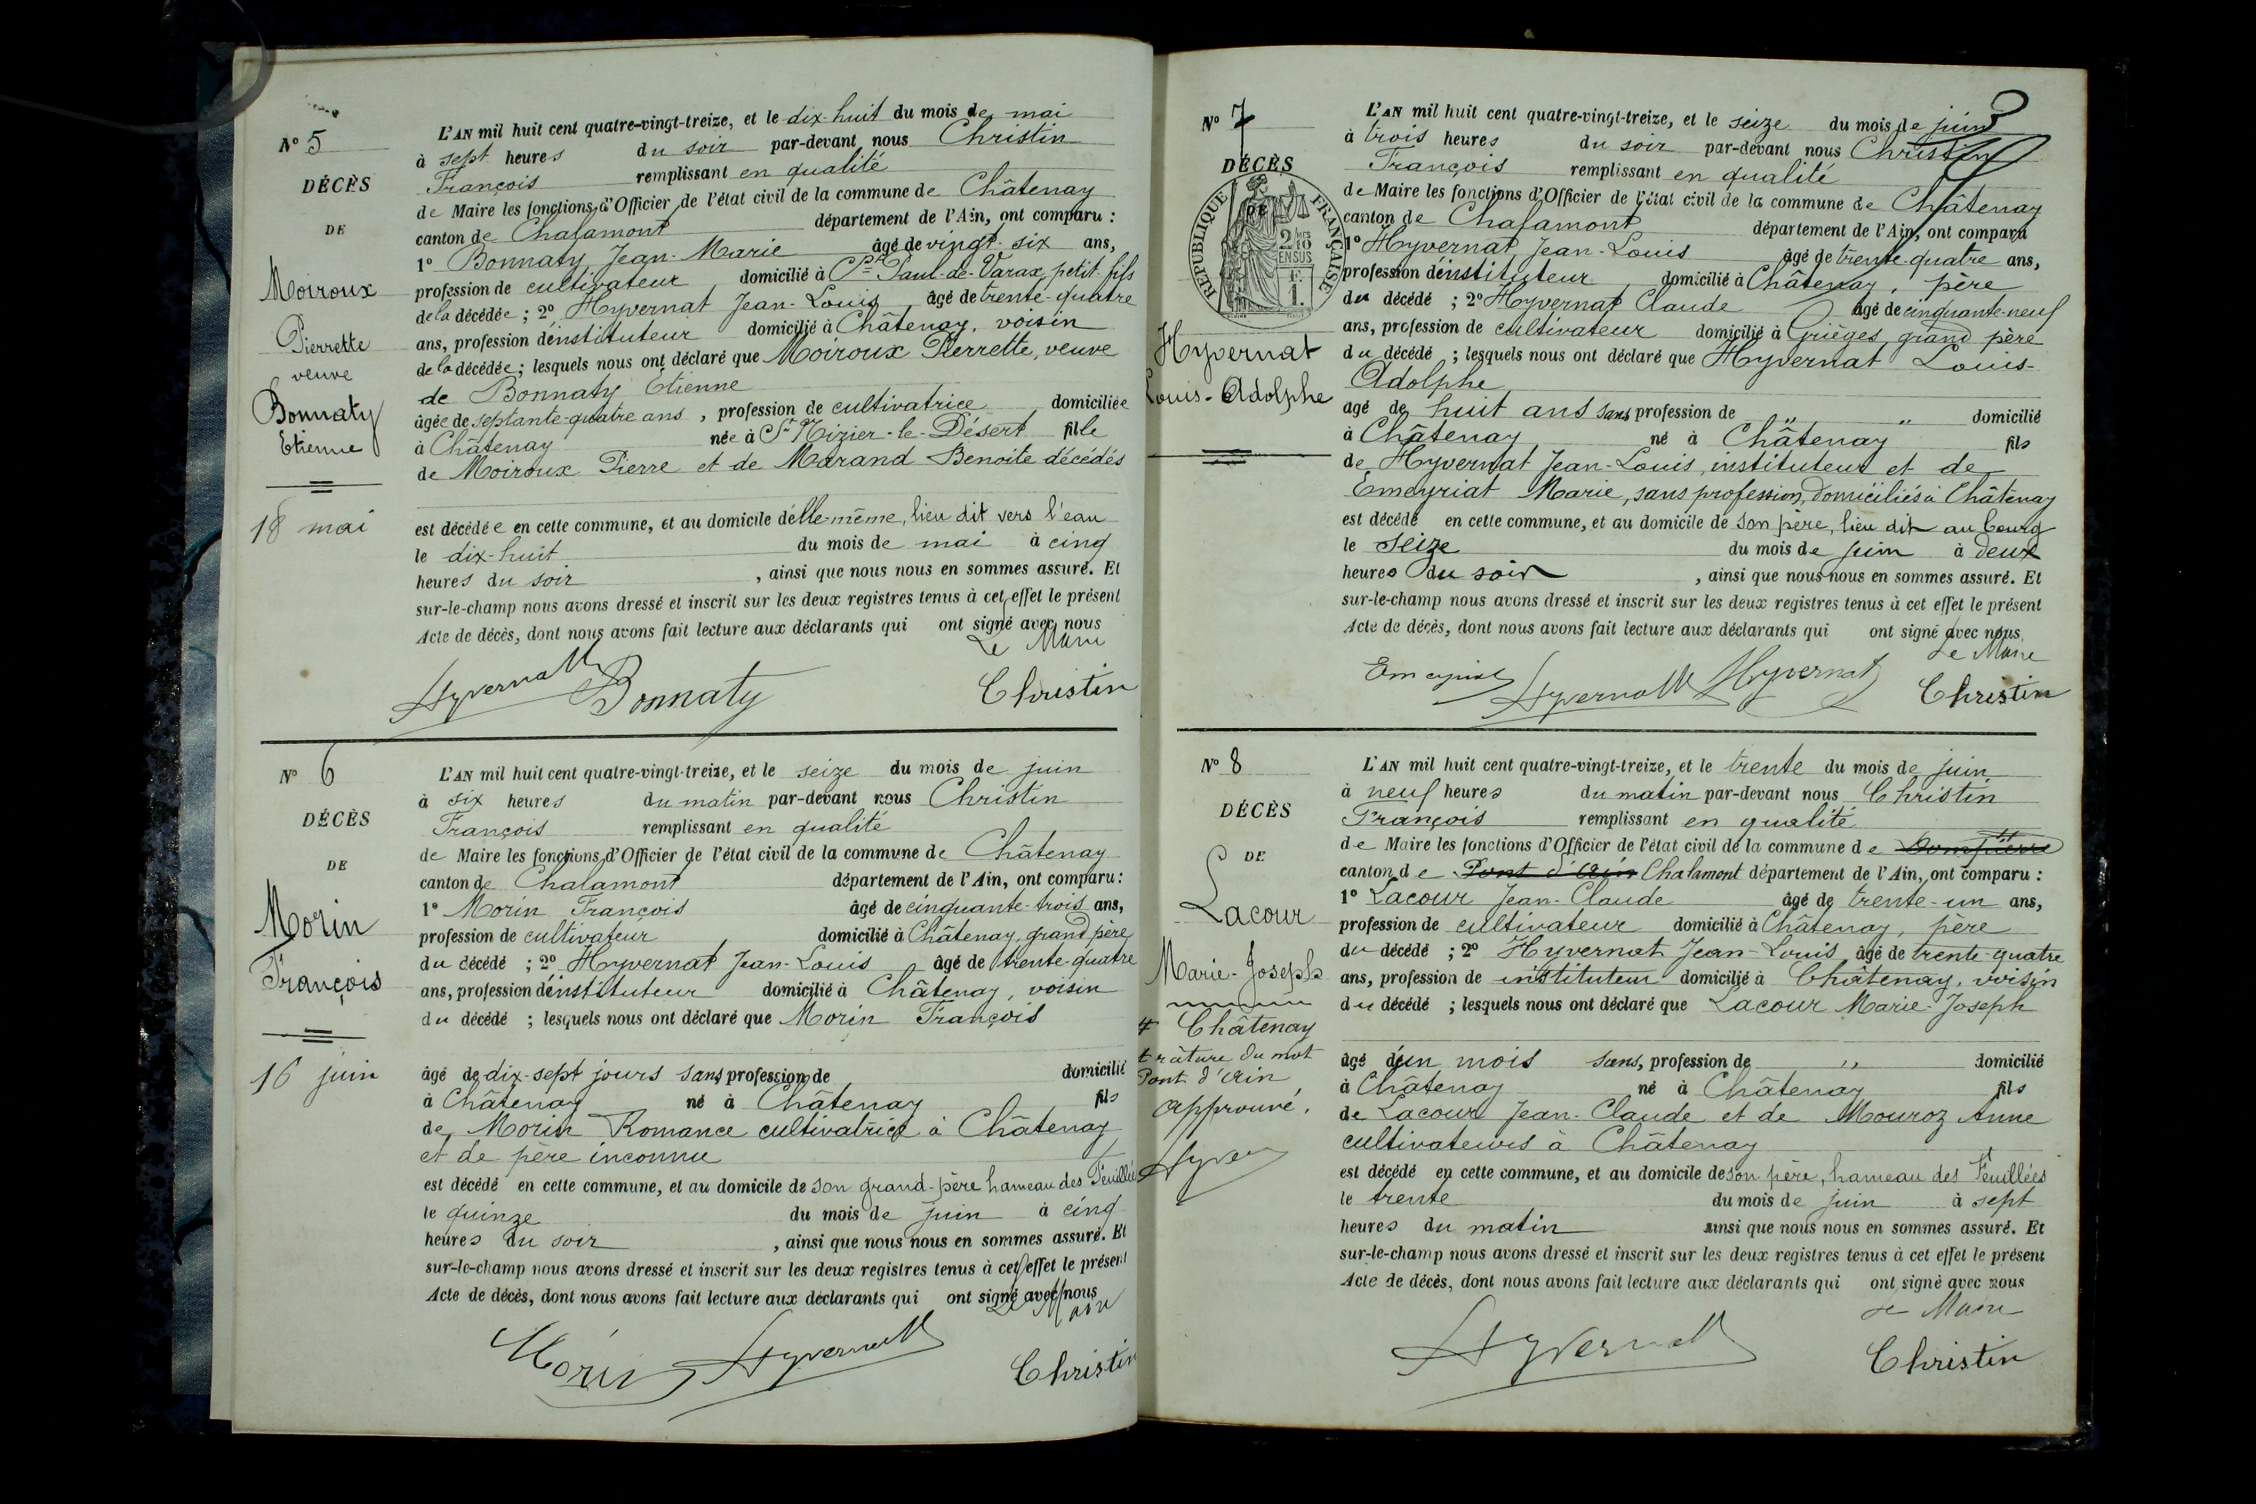 N° 5
DÉCÈS
DE
Moiroux
Pierrette
veuve
Bonnaty
Etienne
18 mai
L'AN mil huit cent quatre-vingt-treize, et le dix-huit du mois de mai
à sept heures du soir par-devant nous Christin
François remplissant en qualité
de Maire les fonctions d'Officier de l'état civil de la commune de Châtenay
canton de Chalamont département de l'Ain, ont comparu :
1° Bonnaty Jean-Marie âgé de vingt-six ans,
profession de cultivateur domicilié à St Paul-de-Varax, petit-fils
de la décédée ; 2° Hyvernat Jean-Louis âgé de trente-quatre
ans, profession d'instituteur domicilié à Châtenay, voisin
de la décédée ; lesquels nous ont déclaré que Moiroux Pierrette, veuve
de Bonnaty Etienne
âgée de septante-quatre ans, profession de cultivatrice domiciliée
à Châtenay née à St Nizier-le-Désert fille
de Moiroux Pierre et de Marand Benoite décédés
est décédée en cette commune, et au domicile d'elle-même, lieu dit vers l'eau
le dix-huit du mois de mai à cinq
heures du soir, ainsi que nous nous en sommes assuré. Et
sur-le-champ nous avons dressé et inscrit sur les deux registres tenus à cet effet le présent
Acte de décès, dont nous avons fait lecture aux déclarants qui ont signé avec nous
Le Maire
Hyvernat Bonnaty Christin
N° 6
DÉCÈS
DE
Morin
François
16 juin
L'AN mil huit cent quatre-vingt-treize, et le seize du mois de juin
à six heures du matin par-devant nous Christin
François remplissant en qualité
de Maire les fonctions d'Officier de l'état civil de la commune de Châtenay
canton de Chalamont département de l'Ain, ont comparu :
1° Morin François âgé de cinquante-trois ans,
profession de cultivateur domicilié à Châtenay, grand père
du décédé ; 2° Hyvernat Jean-Louis âgé de trente-quatre
ans, profession d'instituteur domicilié à Châtenay, voisin
du décédé ; lesquels nous ont déclaré que Morin François
âgé de dix-sept jours sans profession de domicilié
à Châtenay né à Châtenay fils
de Morin Romance cultivatrice à Châtenay
et de père inconnu
est décédé en cette commune, et au domicile de son grand-père hameau des Feuillées
le quinze du mois de juin à cinq
heures du soir, ainsi que nous nous en sommes assuré. Et
sur-le-champ nous avons dressé et inscrit sur les deux registres tenus à cet effet le présent
Acte de décès, dont nous avons fait lecture aux déclarants qui ont signé avec nous
Le Maire
Morin Hyvernat Christin
3
N° 7
DÉCÈS
DE
RÉPUBLIQUE FRANÇAISE
2/10 EN SUS
F. 1.
Hyvernat
Louis-Adolphe
L'AN mil huit cent quatre-vingt-treize, et le seize du mois de juin
à trois heures du soir par-devant nous Christin
François remplissant en qualité
de Maire les fonctions d'Officier de l'état civil de la commune de Châtenay
canton de Chalamont département de l'Ain, ont comparu
1° Hyvernat Jean-Louis âgé de trente-quatre ans,
profession d'instituteur domicilié à Châtenay, père
du décédé ; 2° Hyvernat Claude âgé de cinquante-neuf
ans, profession de cultivateur domicilié à Grièges, grand père
du décédé ; lesquels nous ont déclaré que Hyvernat Louis-
Adolphe
âgé de huit ans sans profession de " " domicilié
à Châtenay né à Châtenay fils
de Hyvernat Jean-Louis, instituteur et de
Emeyriat Marie, sans profession, domiciliés à Châtenay
est décédé en cette commune, et au domicile de son père, lieu dit au bourg
le seize du mois de juin à deux
heures du soir, ainsi que nous nous en sommes assuré. Et
sur-le-champ nous avons dressé et inscrit sur les deux registres tenus à cet effet le présent
Acte de décès, dont nous avons fait lecture aux déclarants qui ont signé avec nous
Le Maire
Emeyriat Hyvernat Hyvernat Christin
N° 8
DÉCÈS
DE
Lacour
Marie-Joseph
# Châtenay
rature du mot
Pont d'Ain
approuvé.
Hyver
L'AN mil huit cent quatre-vingt-treize, et le trente du mois de juin
à neuf heures du matin par-devant nous Christin
François remplissant en qualité
de Maire les fonctions d'Officier de l'état civil de la commune de Dompierre #
canton de Pont d'Ain Chalamont département de l'Ain, ont comparu :
1° Lacour Jean-Claude âgé de trente-un ans,
profession de cultivateur domicilié à Châtenay, père
du décédé ; 2° Hyvernat Jean-Louis âgé de trente-quatre
ans, profession de instituteur domicilié à Châtenay, voisin
du décédé ; lesquels nous ont déclaré que Lacour Marie-Joseph
âgé d'un mois sans, profession de " domicilié
à Châtenay né à Châtenay fils
de Lacour Jean-Claude et de Mouroz Anne
cultivateurs à Châtenay
est décédé en cette commune, et au domicile de son père, hameau des Feuillées
le trente du mois de juin à sept
heures du matin ainsi que nous nous en sommes assuré. Et
sur-le-champ nous avons dressé et inscrit sur les deux registres tenus à cet effet le présent
Acte de décès, dont nous avons fait lecture aux déclarants qui ont signé avec nous
Le Maire
Hyvernat Christin